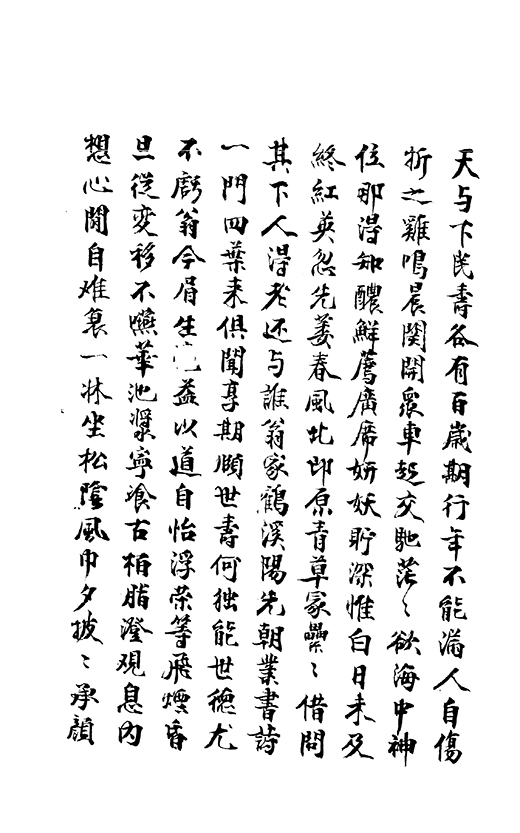 天与下民壽各有百歲期行年不能滿人自傷
折之雞鳴晨関開衆車起交馳茫〻欲海中神
位那得知醲鮮薦廣席妍妖貯深惟白日未及
終紅英忽先萎春風北邙原青草冢壘〻借問
其下人得老还与誰翁家鶴溪陽先朝業書詩
一門四葉来俱聞享期頤世壽何拙能世德尤
不虧翁今眉生益以道自怡浮荣等飛煙昏
旦從变移不嚥華池漿寧飡古柏脂澄观息内
想心閒自难衰一牀坐松陰風巾夕披〻承顔